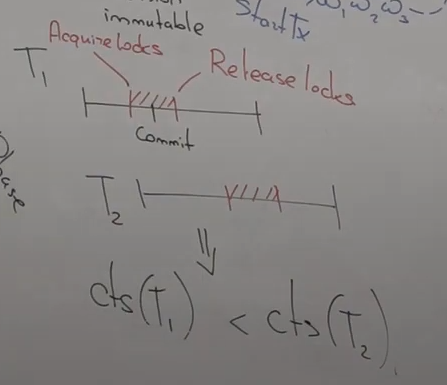 immutable
StartTx
ω₁ ω₂ ω₃ --
Acquire locks
Release locks
T₁
Commit
T₂
⇓
cts(T₁) < cts(T₂)